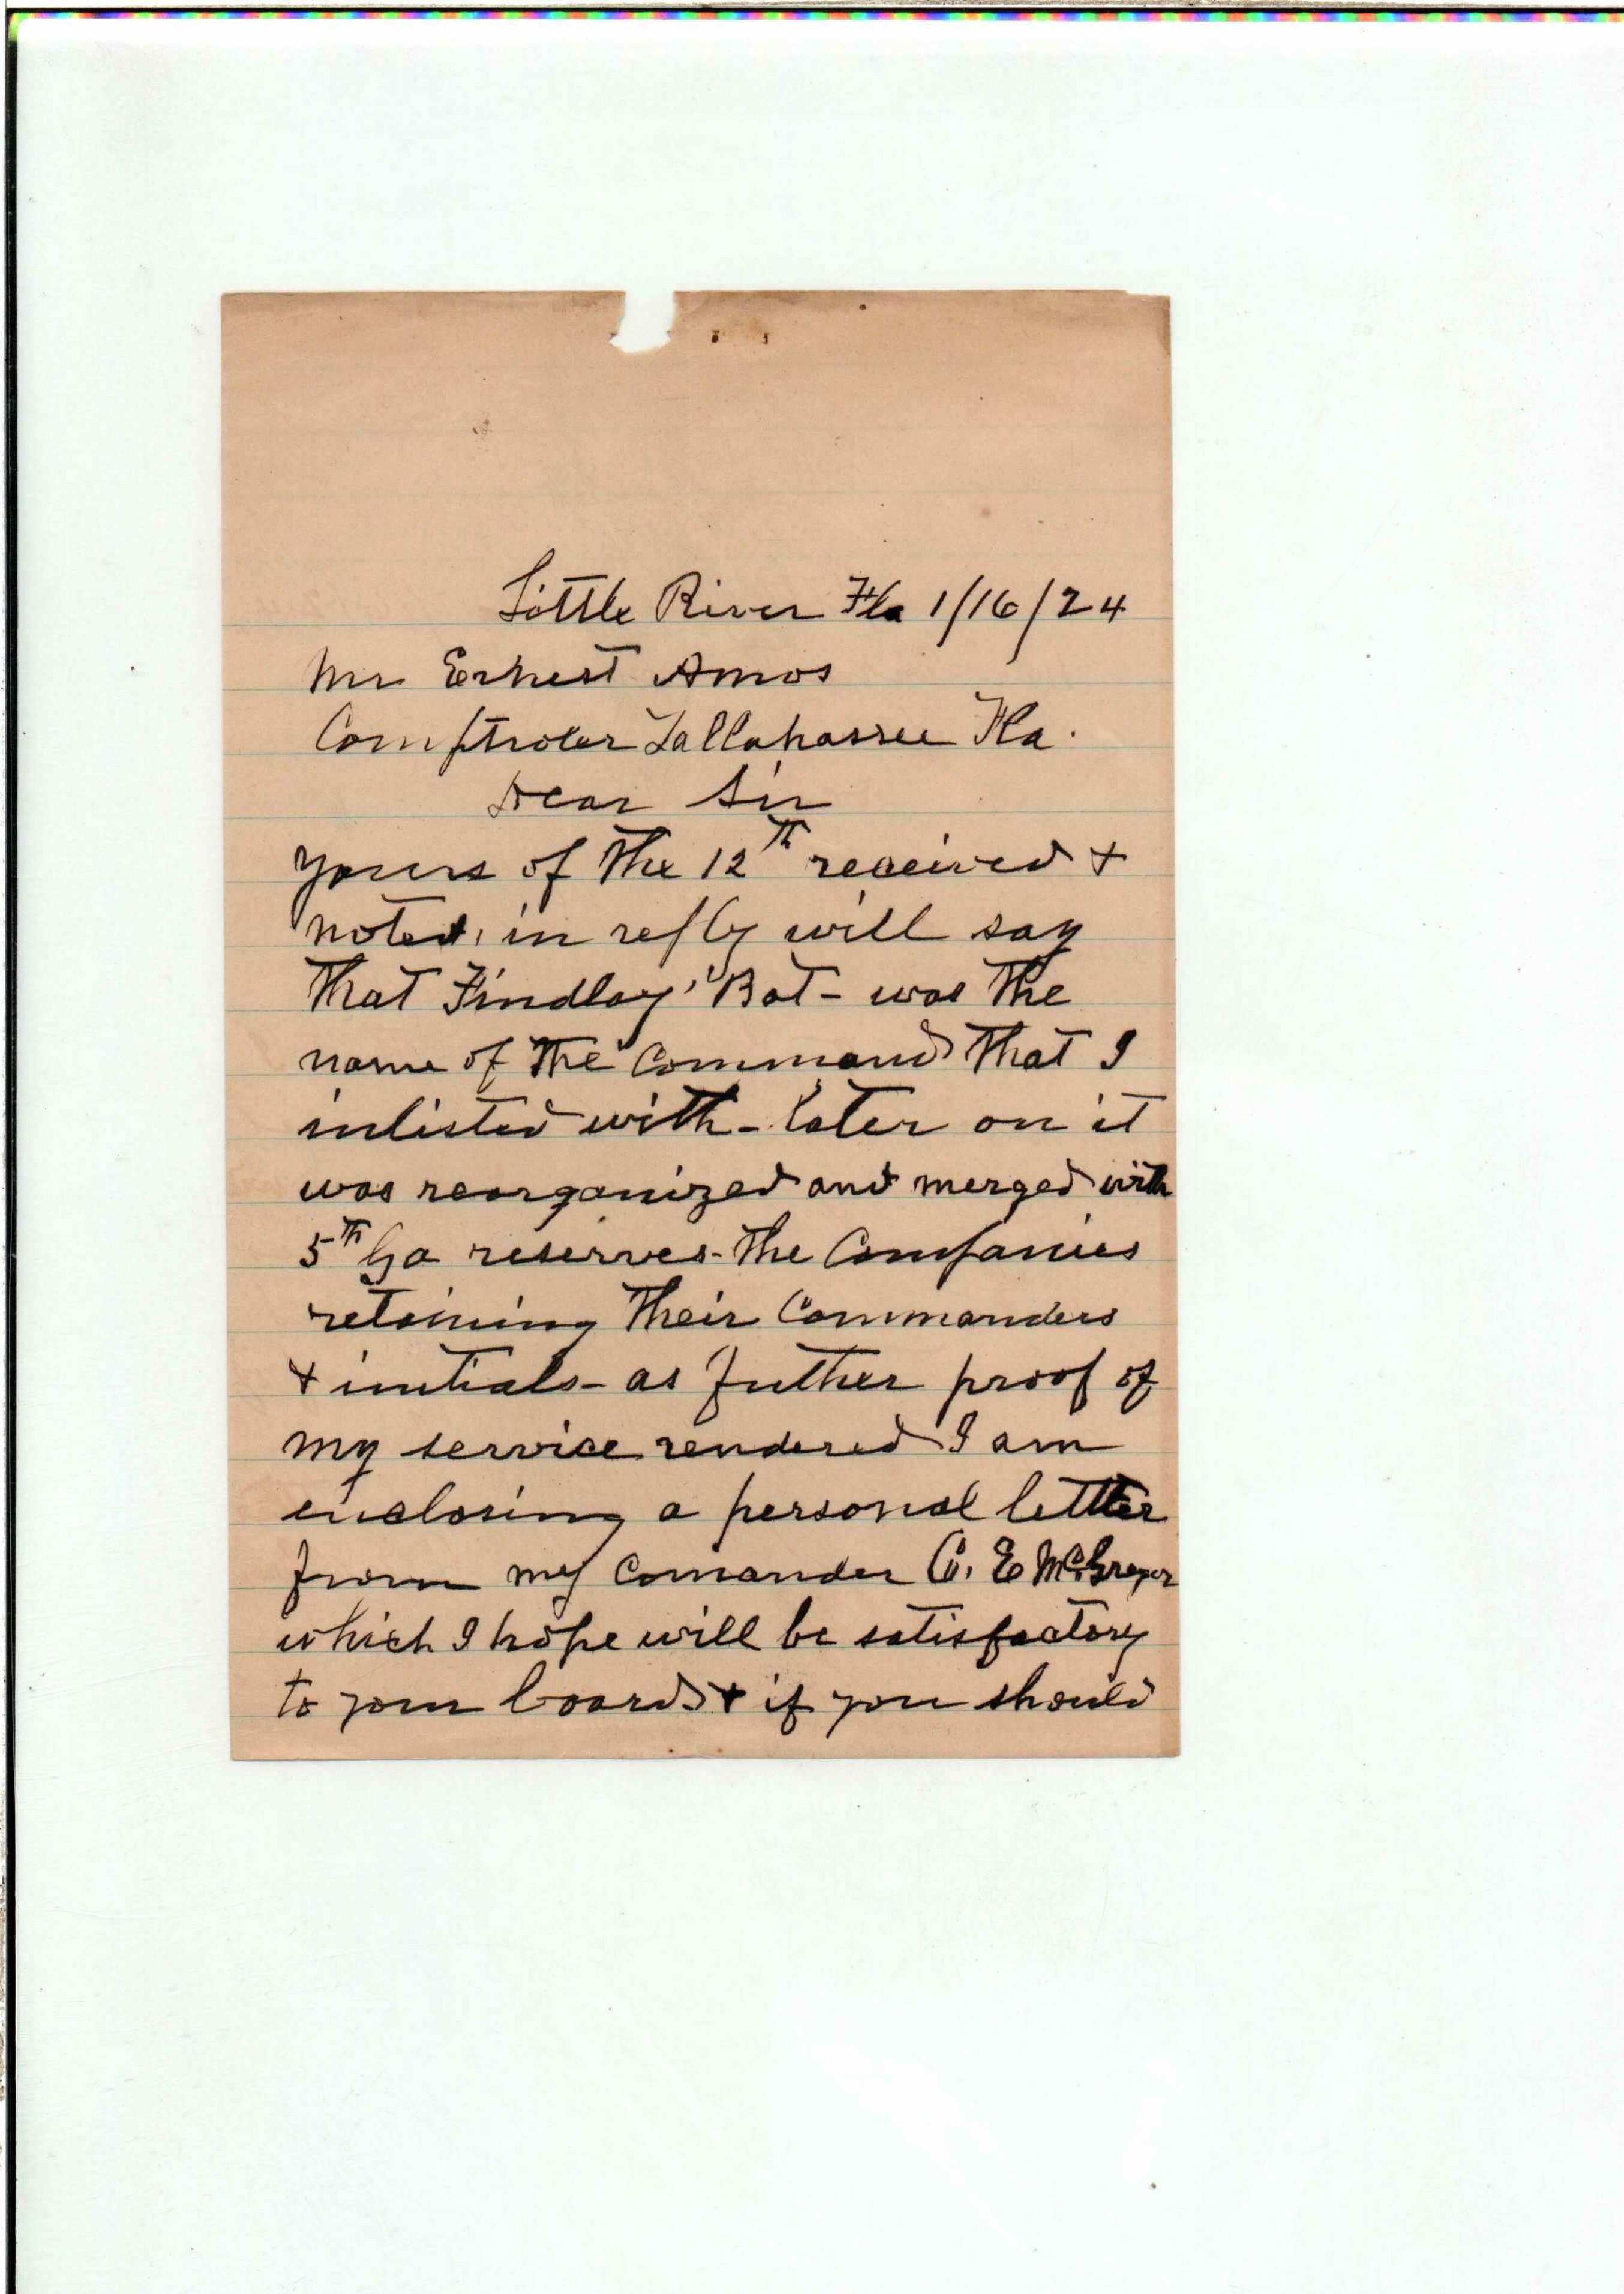 Little River Fla 1/16/24
Mr Ernest Amos
Comptroler Tallahassee Fla.
Dear Sir
yours of the 12th received +
noted, in reply will say
that Findlay's Bat - was the
name of the command that I
inlisted with - later on it
was reorganized and merged with
5th Ga reserves - the Companies
retaining their Commanders
+ initials - as futher proof of
my service rendered I am
enclosing a personal letter
from my comander C. E McGregor
which I hope will be satisfactory
to your board + if you should